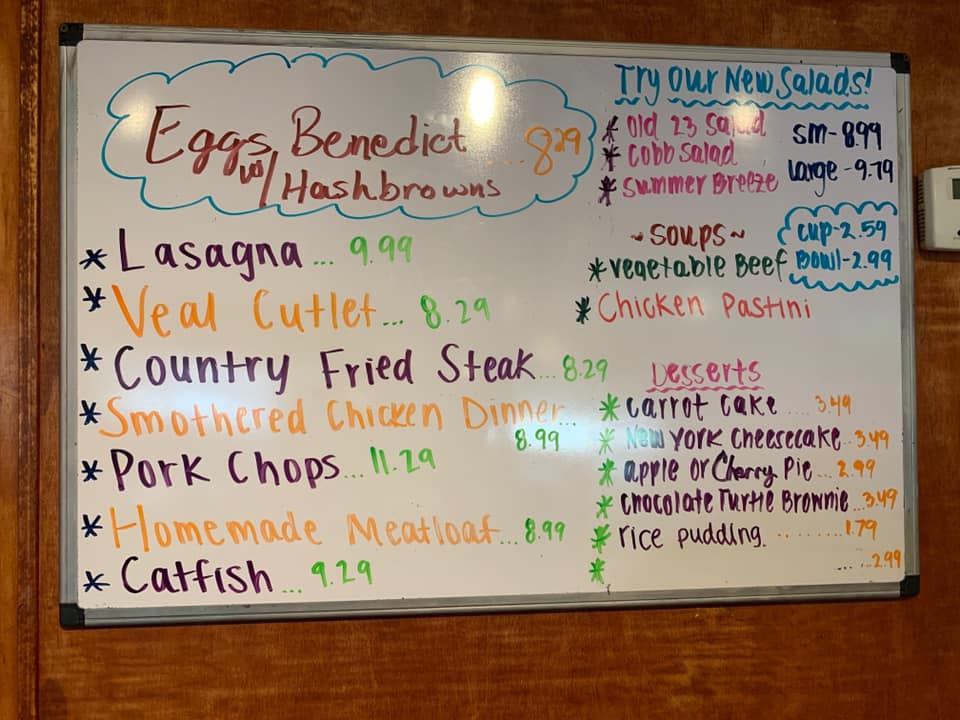 Eggs Benedict .... 8.29
w/ Hashbrowns
* Lasagna... 9.99
* Veal Cutlet... 8.29
* Country Fried Steak... 8.29
* Smothered Chicken Dinner...
8.99
* Pork Chops... 11.29
* Homemade Meatloaf... 8.99
* Catfish... 9.29
Try Our New Salads!
* Old 23 Salad
* Cobb Salad
* Summer Breeze
sm- 8.99
Large - 9.79
~ Soups ~
cup-2.59
Bowl-2.99
* Vegetable Beef
* Chicken Pastini
Desserts
* Carrot Cake .... 3.49
* New York Cheesecake.. 3.49
* apple or Cherry Pie... 2.99
* Chocolate Turtle Brownie...3.49
* rice pudding. ........1.79
* .....2.99